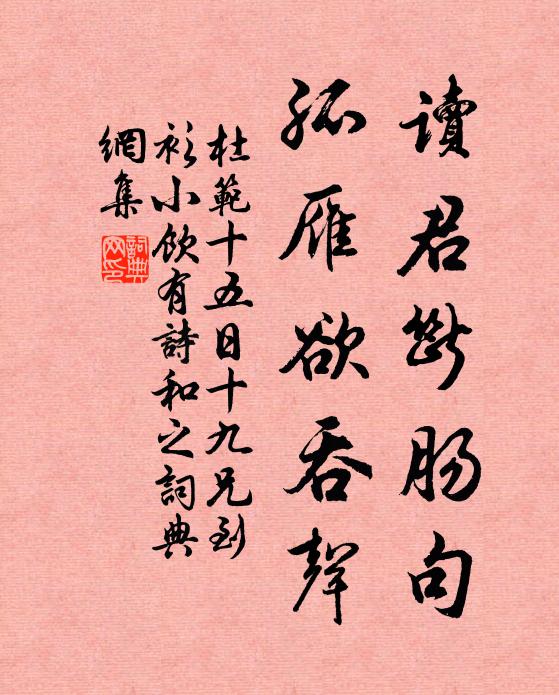 讀君斷腸句
孤雁欲吞聲
杜範十五日十九兄到
衫小飲有詩和之詞典
網集
詞典
网印